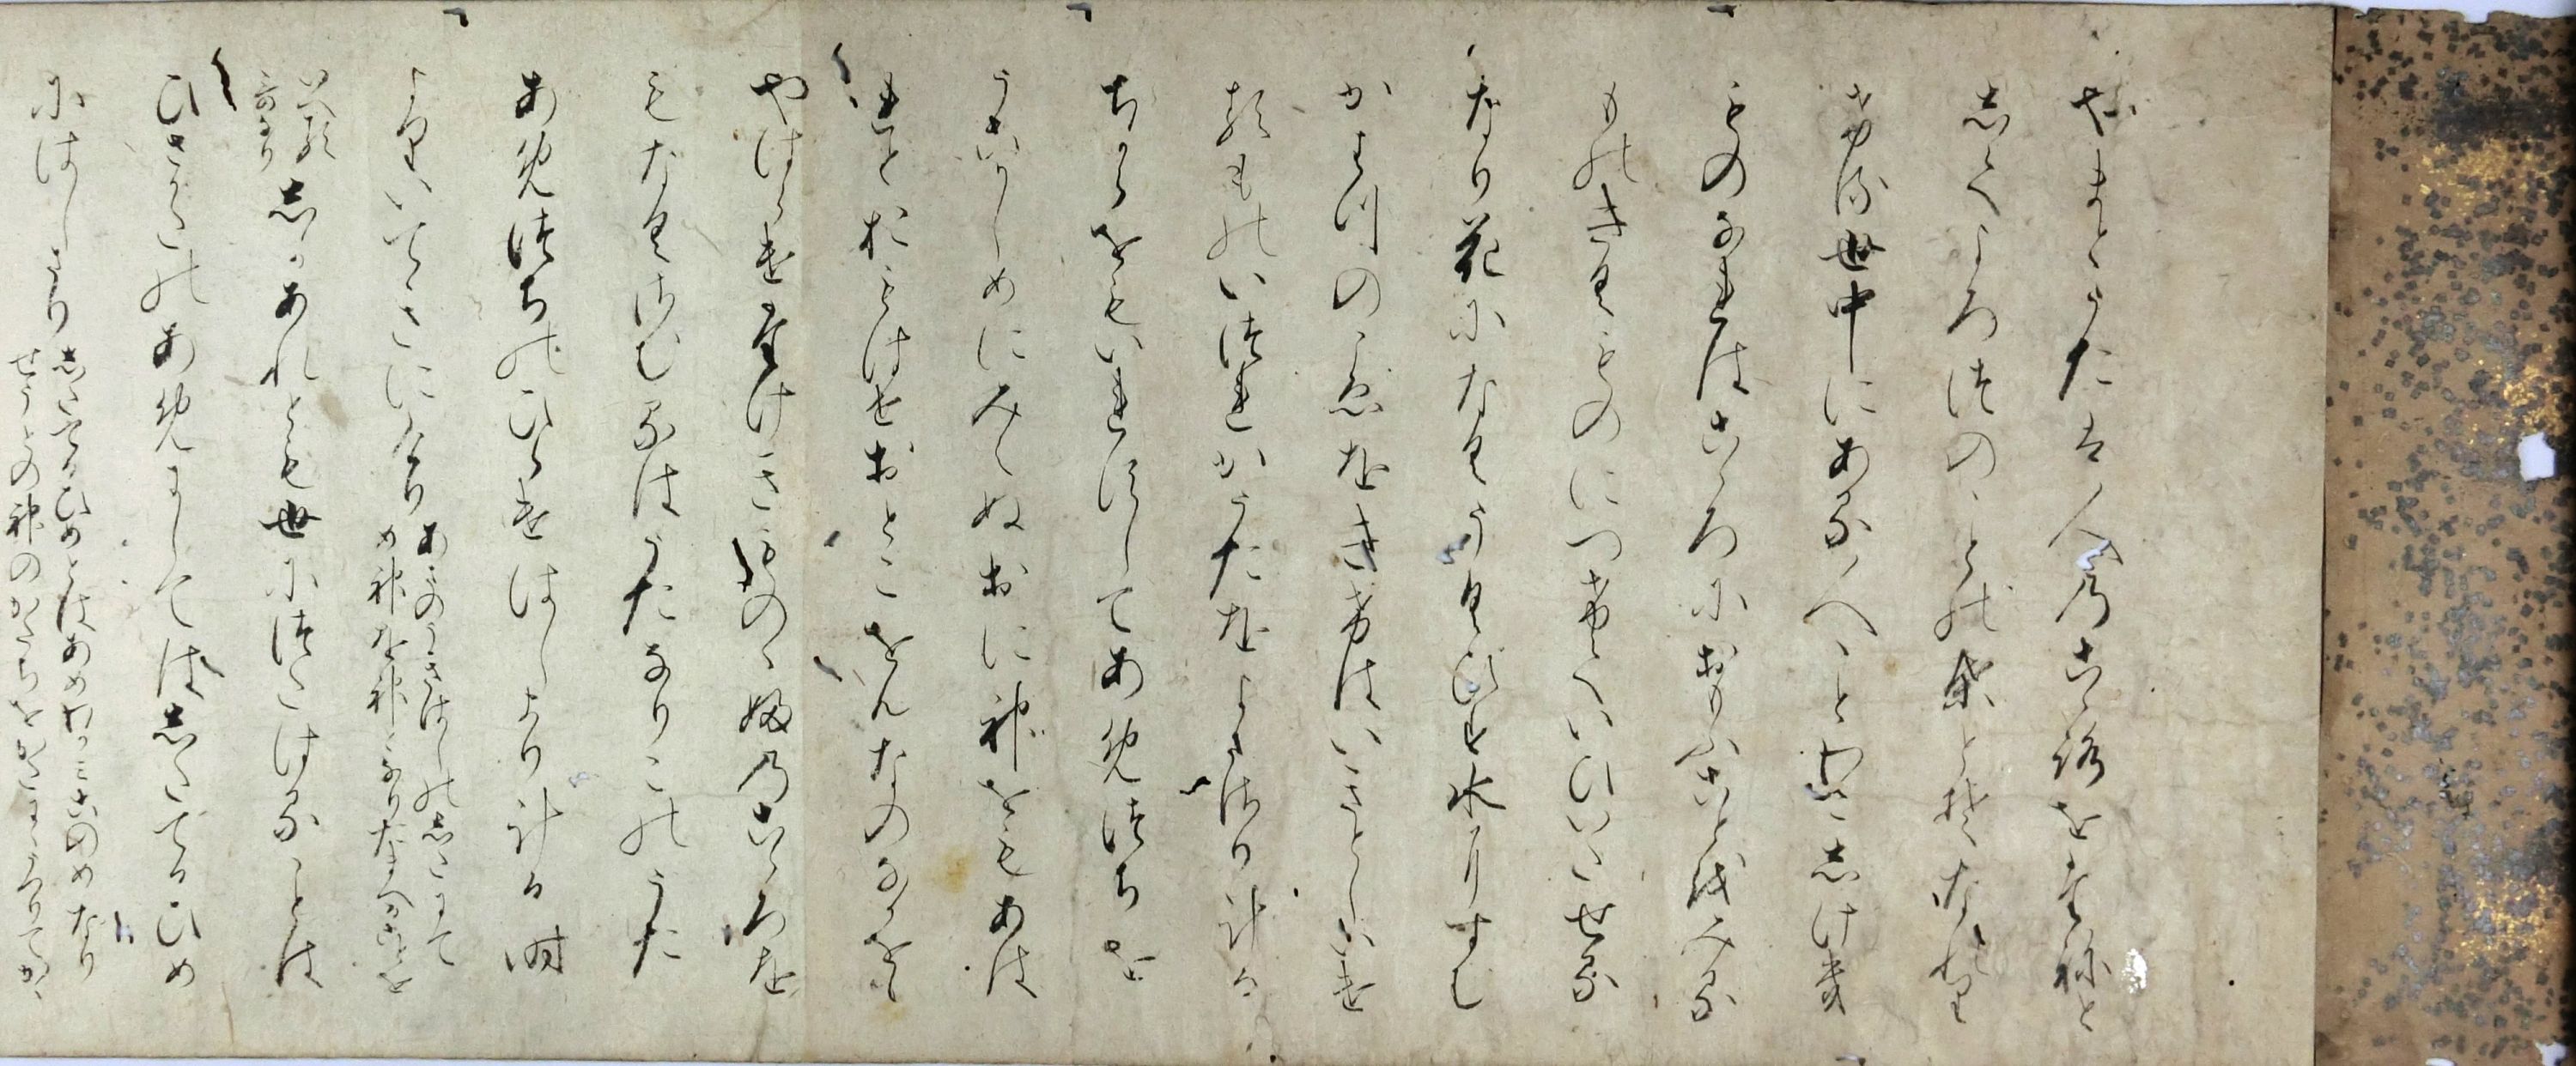 やまとうたは人乃こゝ路をたねと
志てよろ徒のことの葉とそなれり
ける世中にある人ことわさ志けき
ものなれはこゝろにおもふこと越みる
ものきくものにつけていひいたせる
なり花になくうくひす水にすむ
かはつのこゑをきけはいきとしいけ
るものいつれかうたをよまさりける
ちからをもいれすしてあめつちを
うこかしめにみえぬおに神をもあは
れとおもはせおとこをんなのなかを
やはらけたけきものゝふ乃こゝろを
もなくさむるはうたなりこのうた
あめつちのひらけはしまり計る時
よりいてきにけり
あまのうきはしの志たにて
め神を神となりたまへることを
いへる
うたなり
志かあれとも世につたはることは
ひさかたのあめにしては志たてるひめ
にはしまり
志たてるひめとはあめわかみこのめなり
せうとの神のかたちをかたにうつりてかゝ